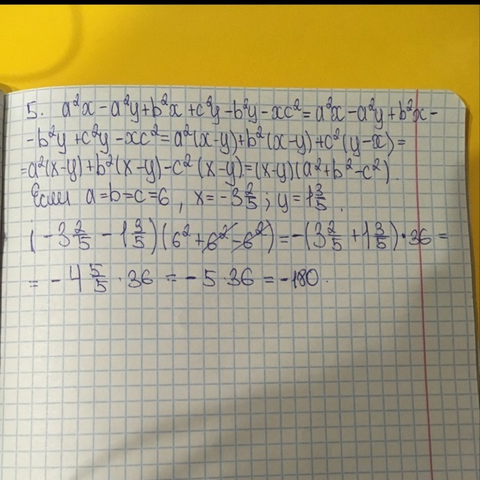 5. a²x-a²y+b²x+c²y-b²y-xc²=a²x-a²y+b²x-
-b²y+c²y-xc²=a²(x-y)+b²(x-y)+c²(y-x)=
=a²(x-y)+b²(x-y)-c²(x-y)=(x-y)(a²+b²-c²).
Если a=b=c=6, x=-3 2/5; y=1 3/5.
(-3 2/5 - 1 3/5)(6²+6²-6²)=-(3 2/5+1 3/5)·36=
=-4 5/5·36=-5·36=-180.